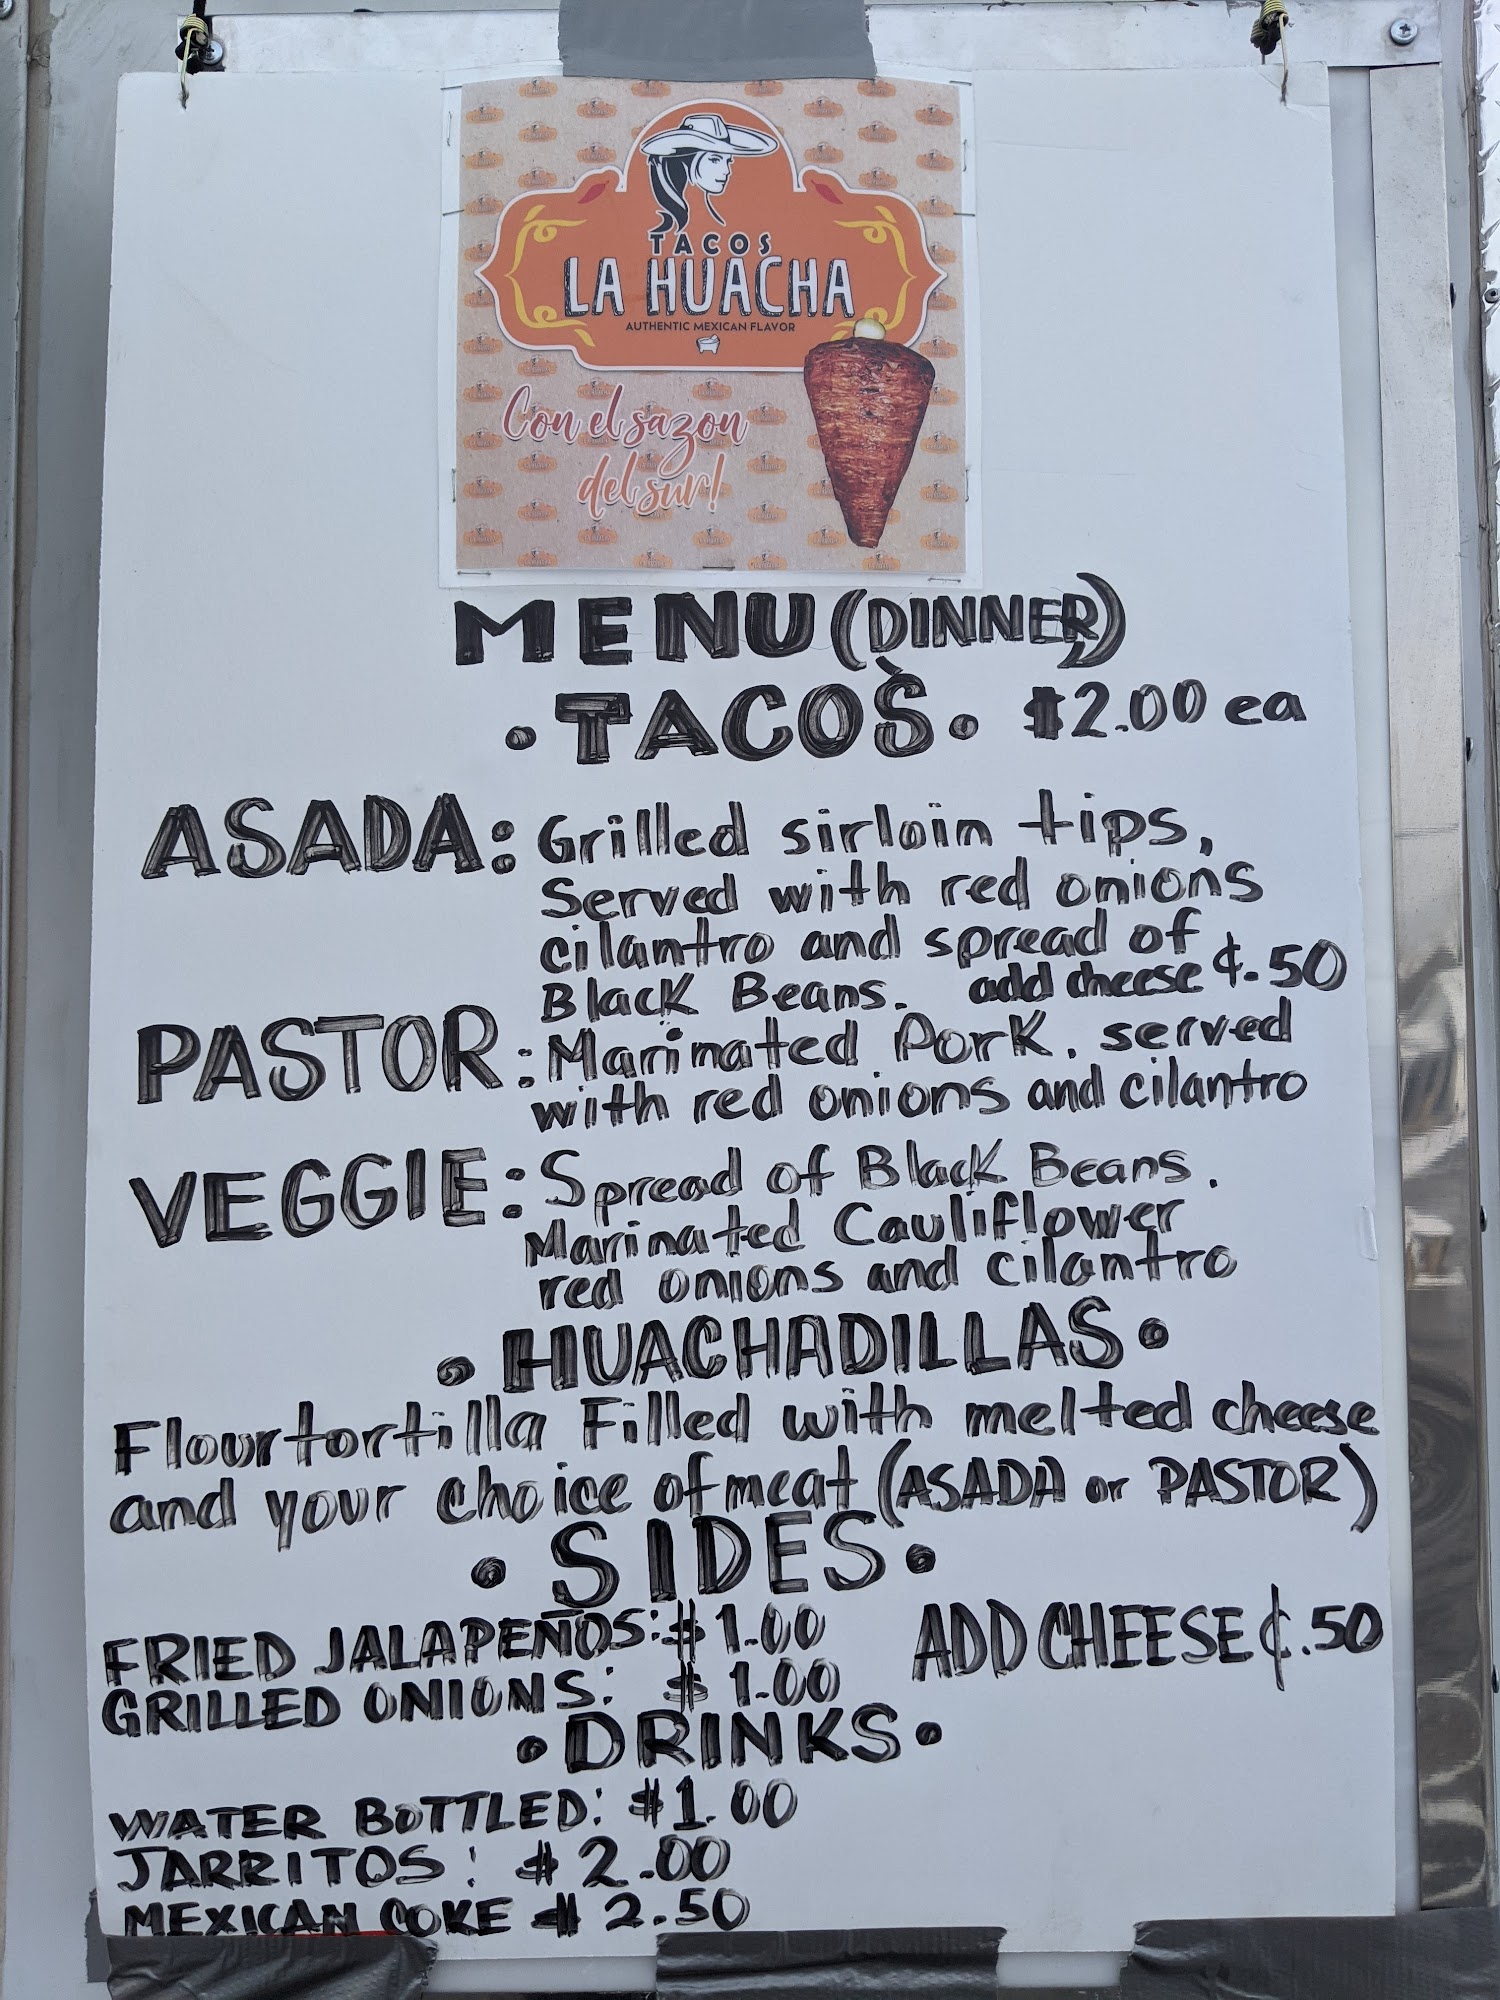 TACOS
LA HUACHA
AUTHENTIC MEXICAN FLAVOR
Con el sazon
del sur!
MENU (DINNER)
• TACOS • $2.00 ea
ASADA: Grilled sirloin tips,
Served with red onions
cilantro and spread of
Black Beans. add cheese ¢.50
PASTOR: Marinated Pork. served
with red onions and cilantro
VEGGIE: Spread of Black Beans.
Marinated Cauliflower
red onions and cilantro
• HUACHADILLAS •
Flour tortilla Filled with melted cheese
and your choice of meat (ASADA or PASTOR)
• SIDES •
FRIED JALAPEÑOS: $1.00 ADD CHEESE ¢.50
GRILLED ONIONS: $1.00
• DRINKS •
WATER BOTTLED: $1.00
JARRITOS: $2.00
MEXICAN COKE $2.50